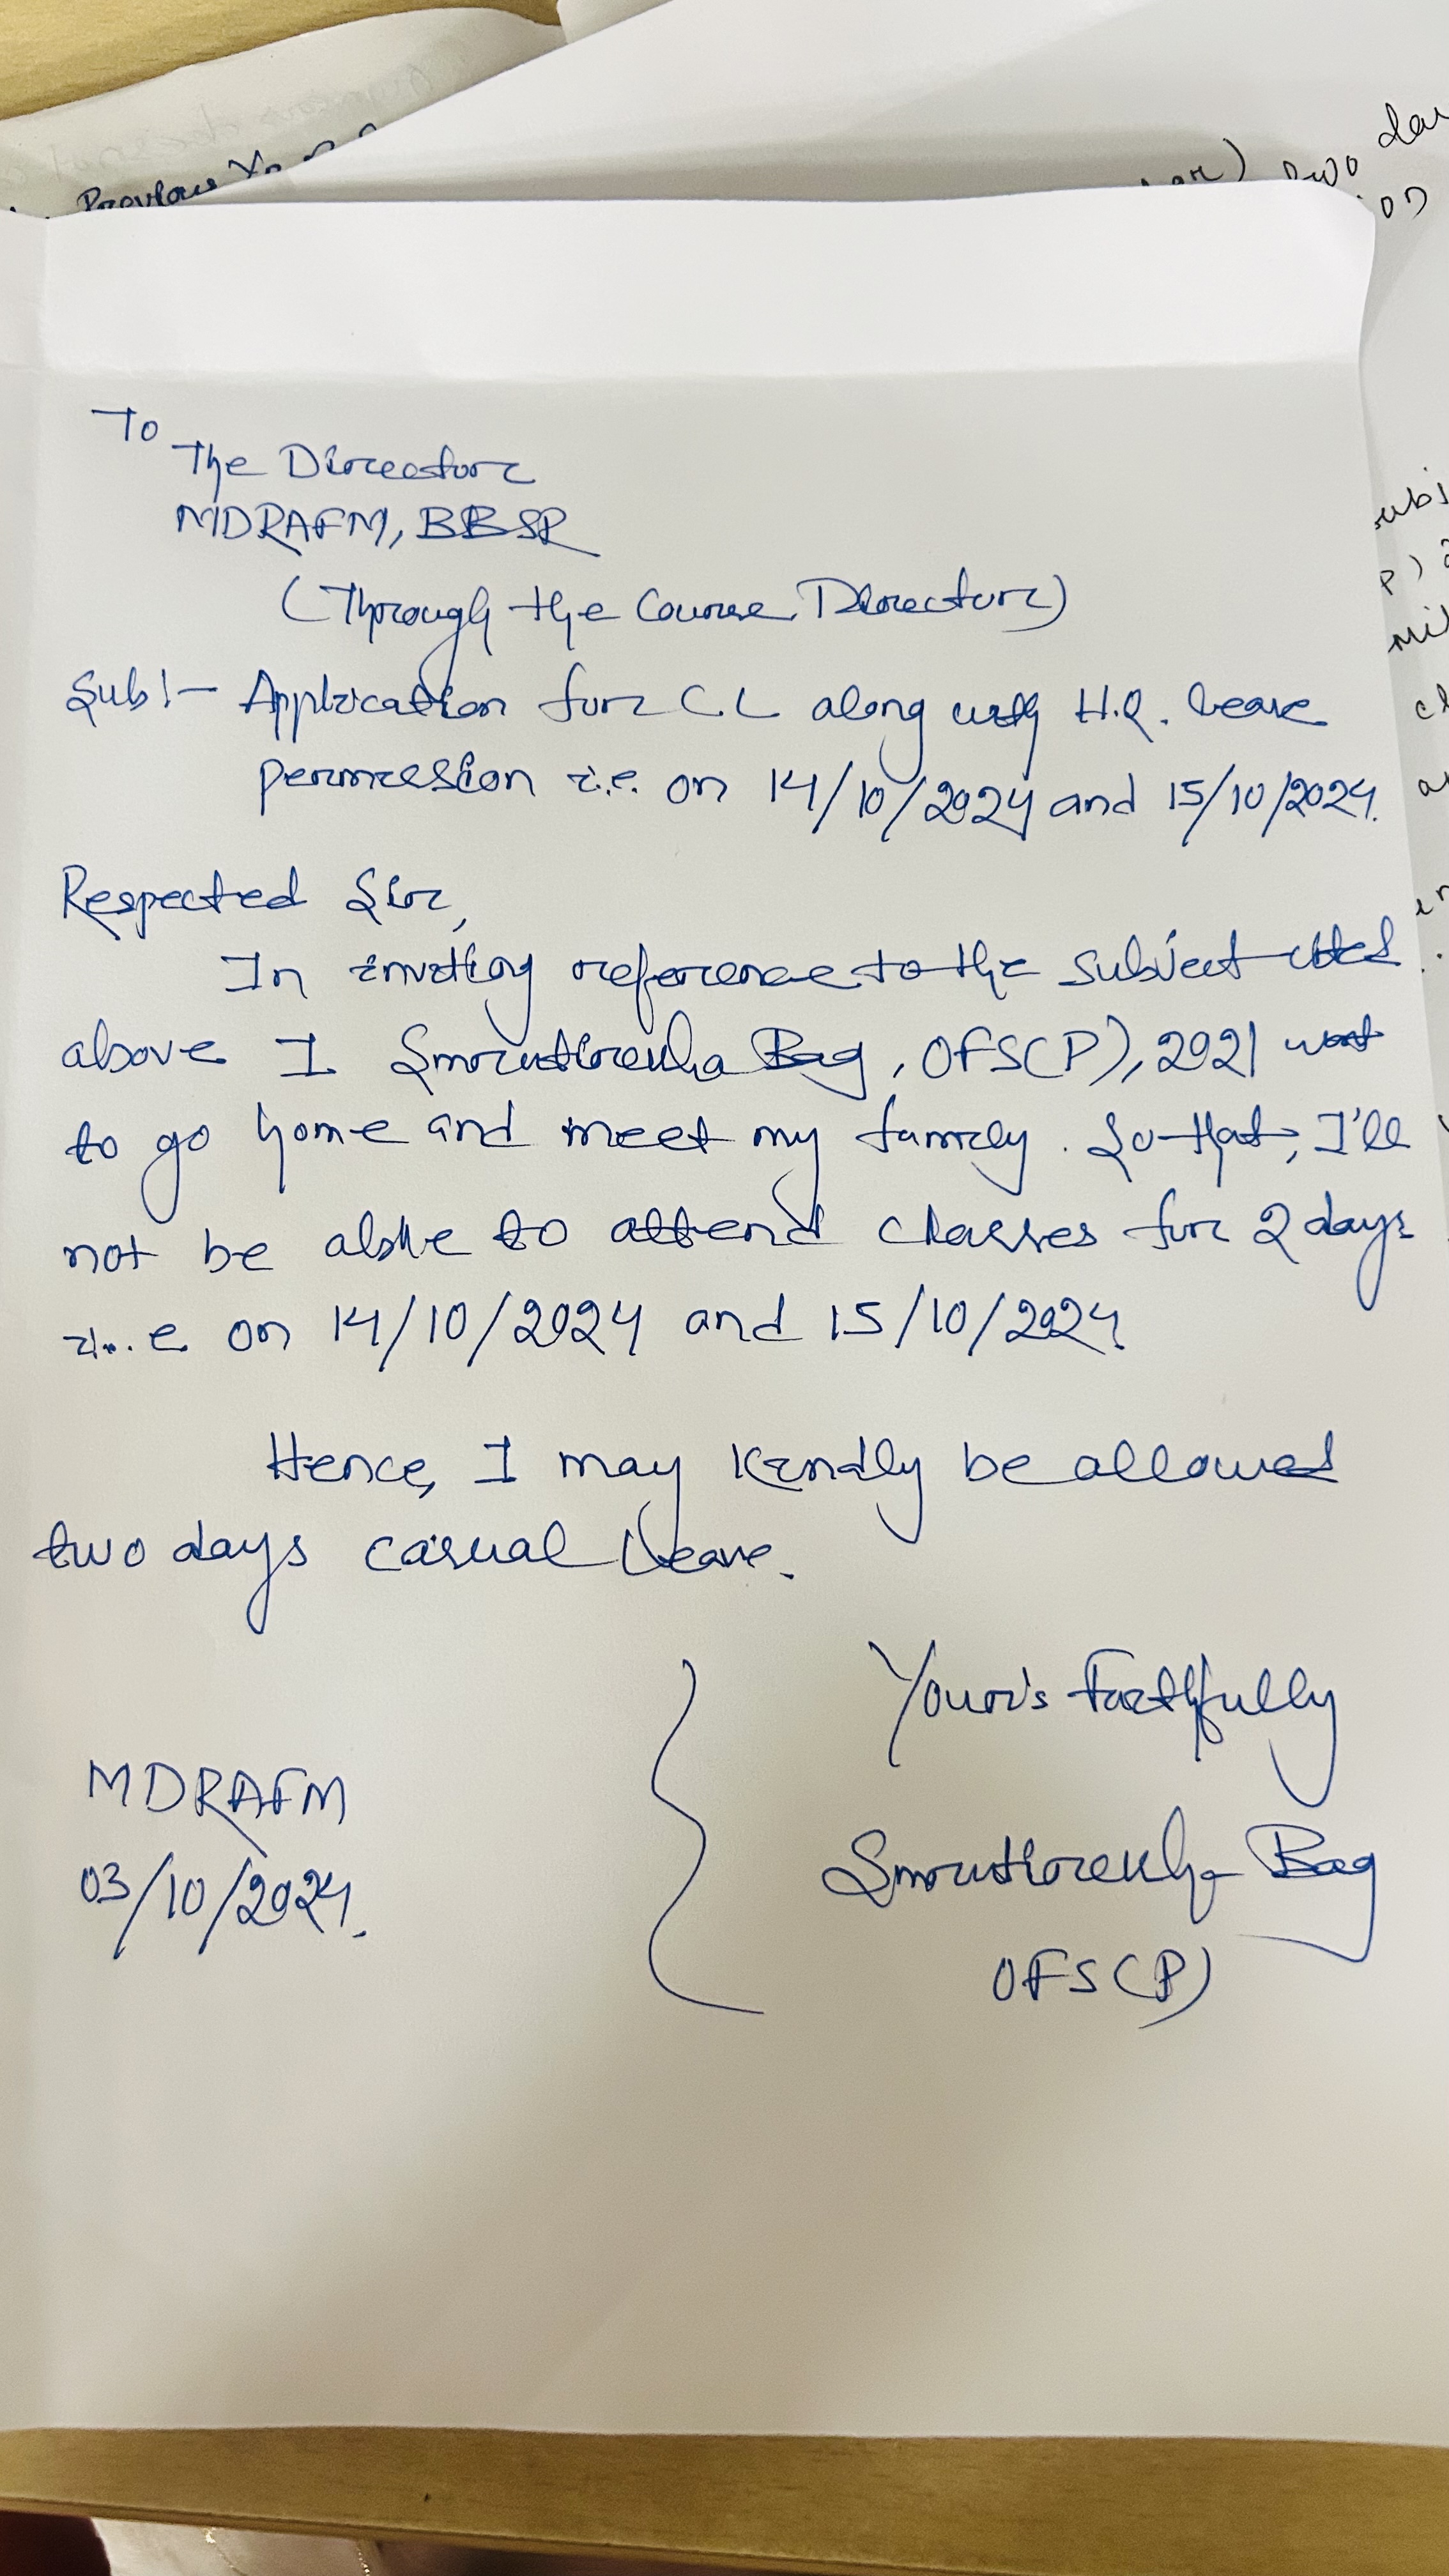 Previous
dar
two
ion
To
The Director
MDRAFM, BBSR
(Through the Course Director)
Sub:- Application for C.L along with H.Q. leave
permission i.e. on 14/10/2024 and 15/10/2024.
Respected Sir,
In inviting reference to the subject cited
above I Smrutirekha Bag, OFS(P), 2021 want
to go home and meet my family. So that, I'll
not be able to attend classes for 2 days
i.e on 14/10/2024 and 15/10/2024.
Hence, I may kindly be allowed
two days casual leave.
Your's Faithfully
MDRAFM
Smrutirekha Bag
03/10/2024.
OFS(P)